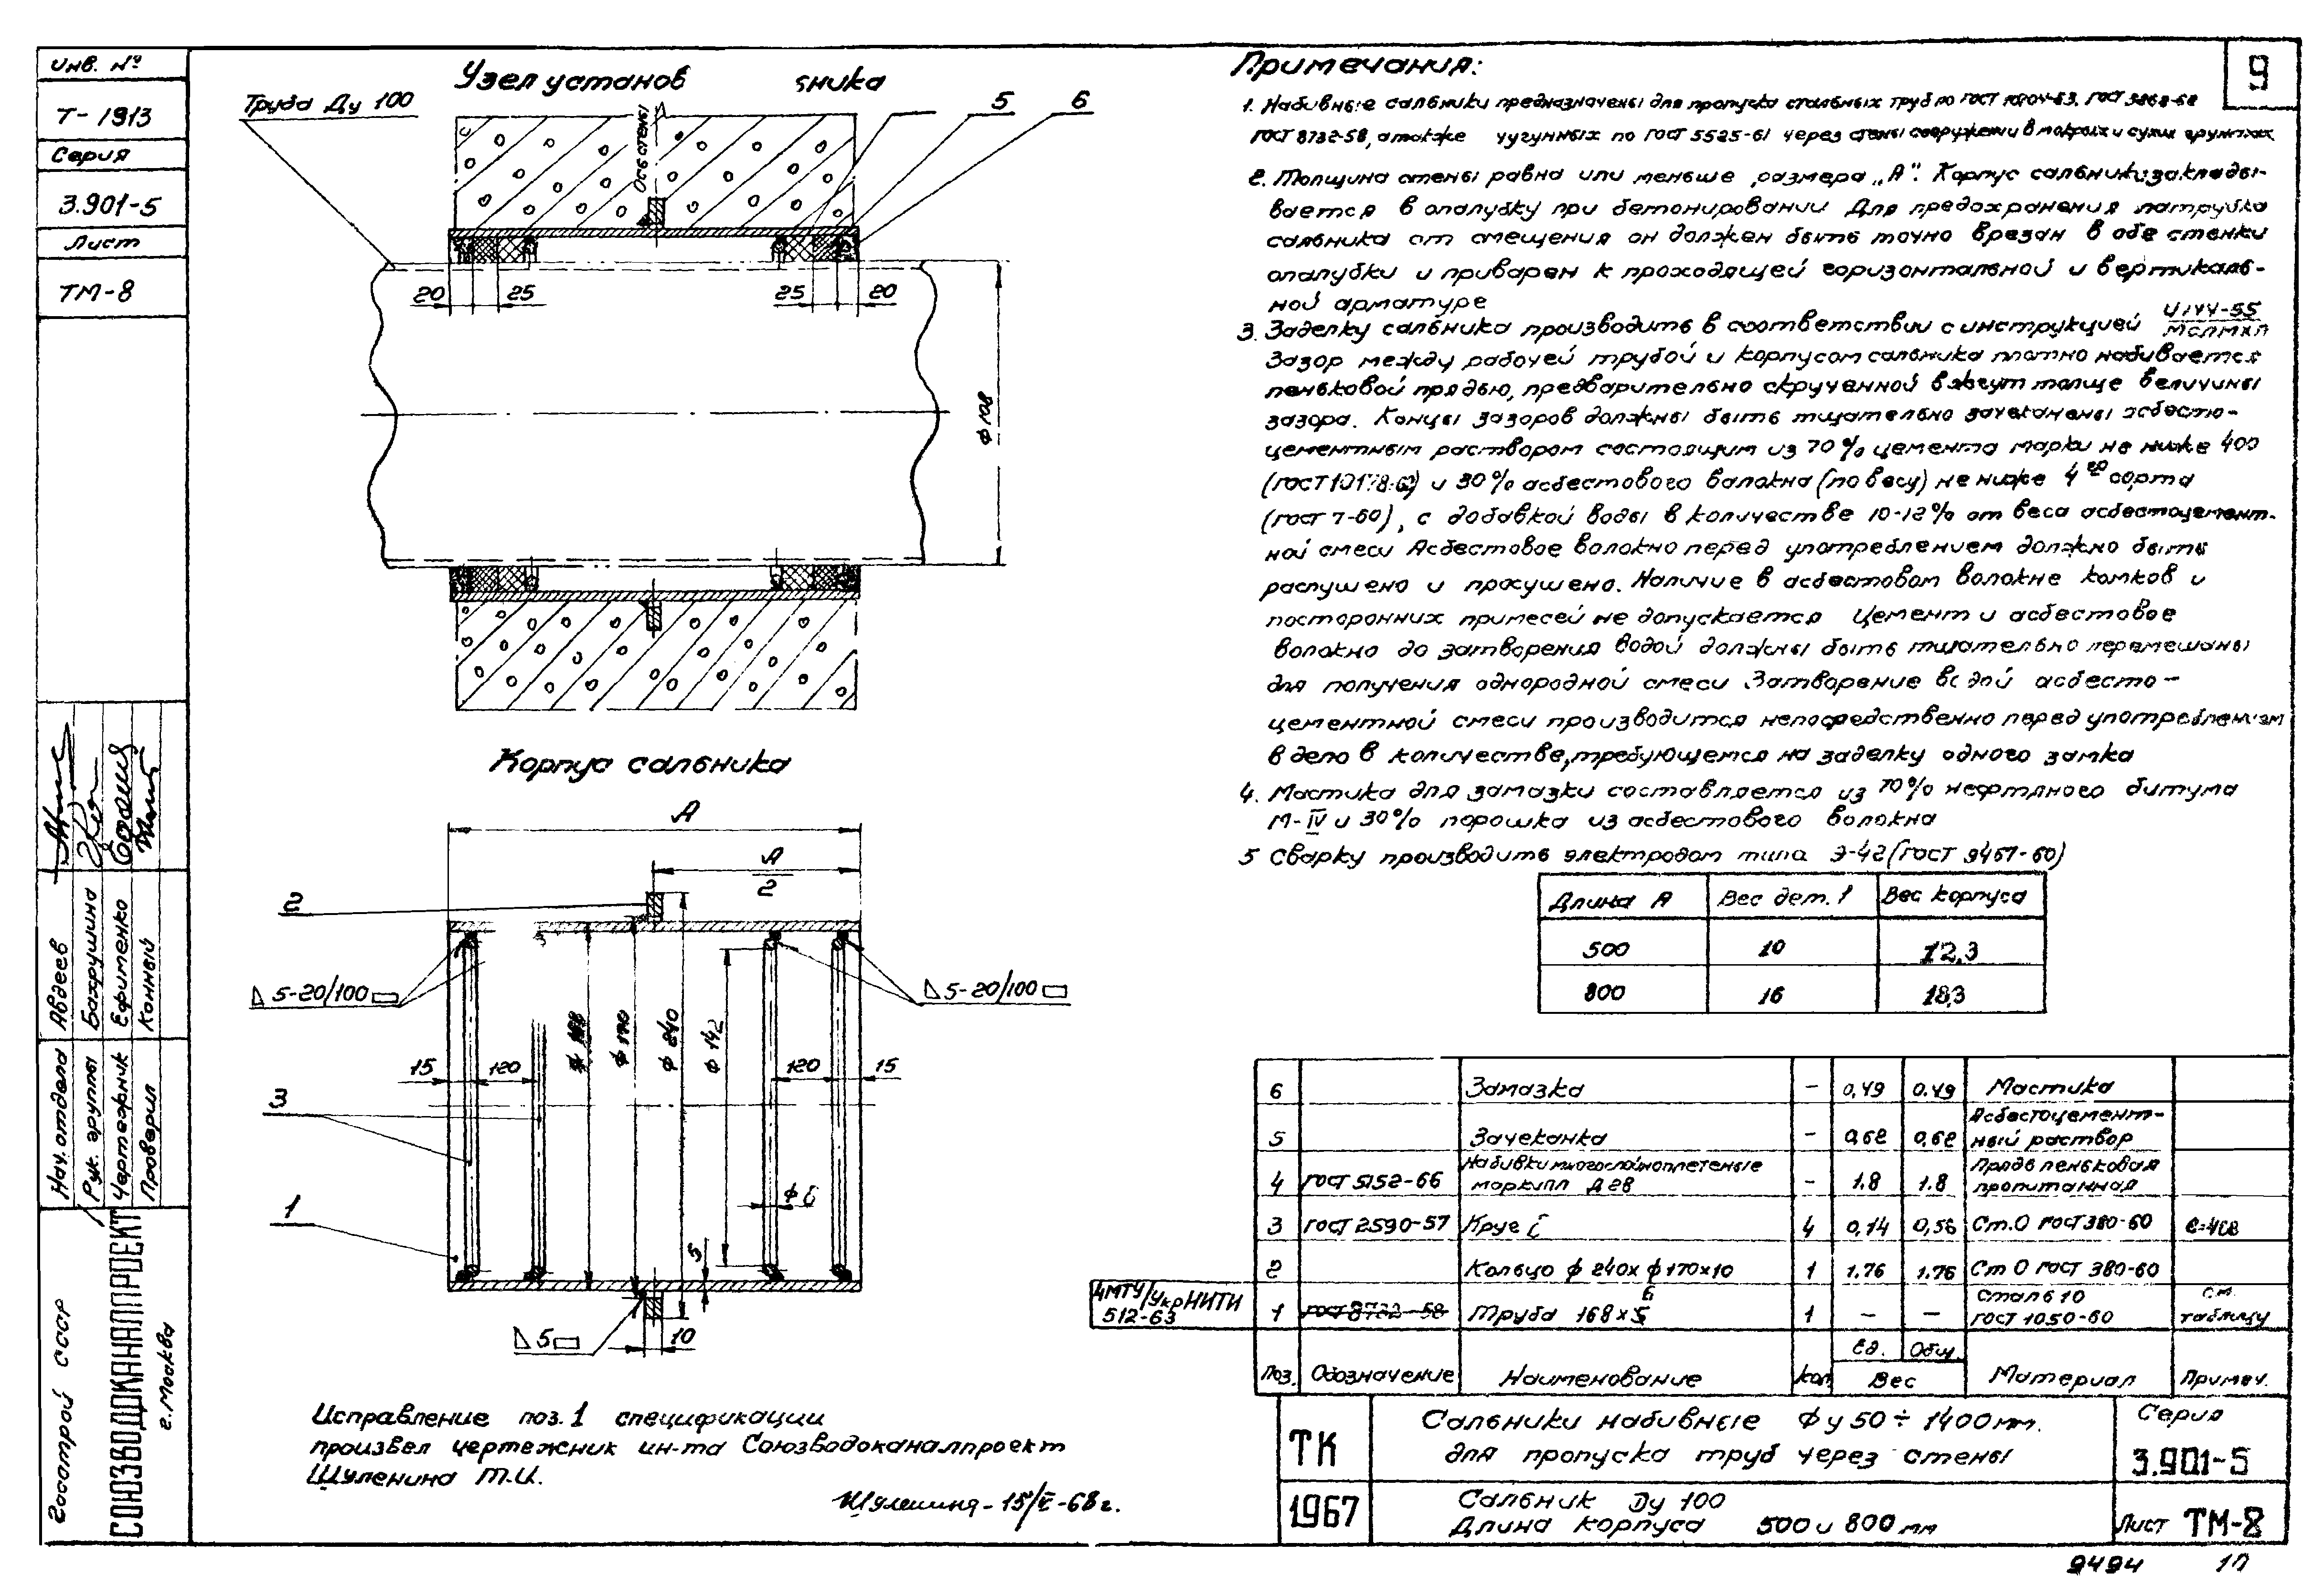 Инв. №
Т-1913
Серия
3.901-5
Лист
ТМ-8
Нач. отдела Авдеев
Рук. группы Бахрушина
Чертежник Ефименко
Проверил Конный
Госстрой СССР
СОЮЗВОДОКАНАЛПРОЕКТ
г. Москва
Узел установ ьника
Труба Ду 100
5
6
Ось стены
20
25
25
20
ф 108
Корпус сальника
А
А
2
2
5-20/100
5-20/100
ф 170
ф 240
ф 142
15
120
120
15
3
1
5
5
10
Исправление поз. 1 спецификации
произвел чертежник ин-та Союзводоканалпроект
Шуленина Т.И.
Шуленина - 15/V-68 г.
9
Примечания:
1. Набивные сальники предназначены для пропуска стальных труб по ГОСТ 10704-63, ГОСТ 3262-62
ГОСТ 8732-58, а также чугунных по ГОСТ 5525-61 через стены сооружений в мокрых и сухих грунтах
2. Толщина стены равна или меньше размера „А". Корпус сальника заклады-
вается в опалубку при бетонировании Для предохранения патрубка
сальника от смещения он должен быть точно врезан в обе стенки
опалубки и приварен к проходящей горизонтальной и вертикаль-
ной арматуре
3. Заделку сальника производить в соответствии с инструкцией И144-55
МСПМХП
Зазор между рабочей трубой и корпусом сальника плотно набивается
пеньковой прядью, предварительно скрученной в жгут толще величины
зазора. Концы зазоров должны быть тщательно зачеканены асбесто-
цементным раствором состоящим из 70% цемента марки не ниже 400
(ГОСТ 10178-62) и 30% асбестового волокна (по весу) не ниже 4го сорта
(ГОСТ 7-60), с добавкой воды в количестве 10-12% от веса асбестоцемент-
ной смеси Асбестовое волокно перед употреблением должно быть
распушено и просушено. Наличие в асбестовом волокне комков и
посторонних примесей не допускается Цемент и асбестовое
волокно до затворения водой должны быть тщательно перемешаны
для получения однородной смеси Затворение водой асбесто-
цементной смеси производится непосредственно перед употреблением
в дело в количестве, требующемся на заделку одного замка
4. Мастика для замазки составляется из 70% нефтяного битума
М-IV и 30% порошка из асбестового волокна
5 Сварку производить электродом типа Э-42 (ГОСТ 9467-60)
Длина А Вес дет. 1 Вес корпуса
500 10 12,3
800 16 18,3
6 Замазка - 0,49 0,49 Мастика
5 Зачеканка - 0,62 0,62 Асбестоцемент-
ный раствор
4 ГОСТ 5152-66 Набивки многослойноплетеные
марки ПП Д 28 - 1.8 1.8 Прядь пеньковая
пропитанная
3 ГОСТ 2590-57 Круг 4 0,14 0,56 Ст.0 ГОСТ 380-60
2 Кольцо ф 240х ф170х10 1 1.76 1.76 Ст 0 ГОСТ 380-60
ЦМТУ/УкрНИТИ
512-63
1 ГОСТ 8732-58 Труба 168х5 6 1 - - Сталь 10
ГОСТ 1050-60 см.
таблицу
Поз. Обозначение Наименование Кол Ед. Общ. Вес Материал Примеч.
ТК
1967
Сальники набивные Фу 50÷1400мм.
для пропуска труб через стены
Серия
3.901-5
Сальник Ду 100
Длина корпуса 500 и 800 мм
Лист ТМ-8
9494